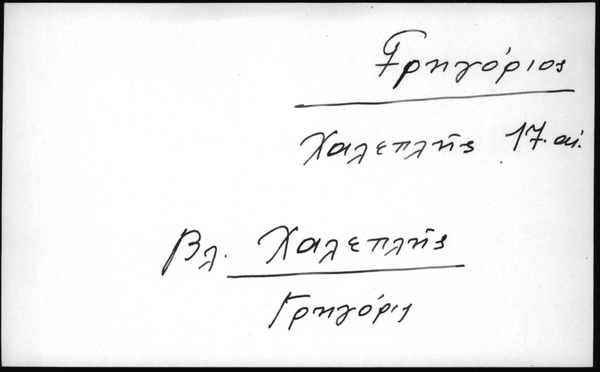 Γρηγόριος
Χαλεπλής 17. αι.
Βλ. Χαλεπλής
Γρηγόρις